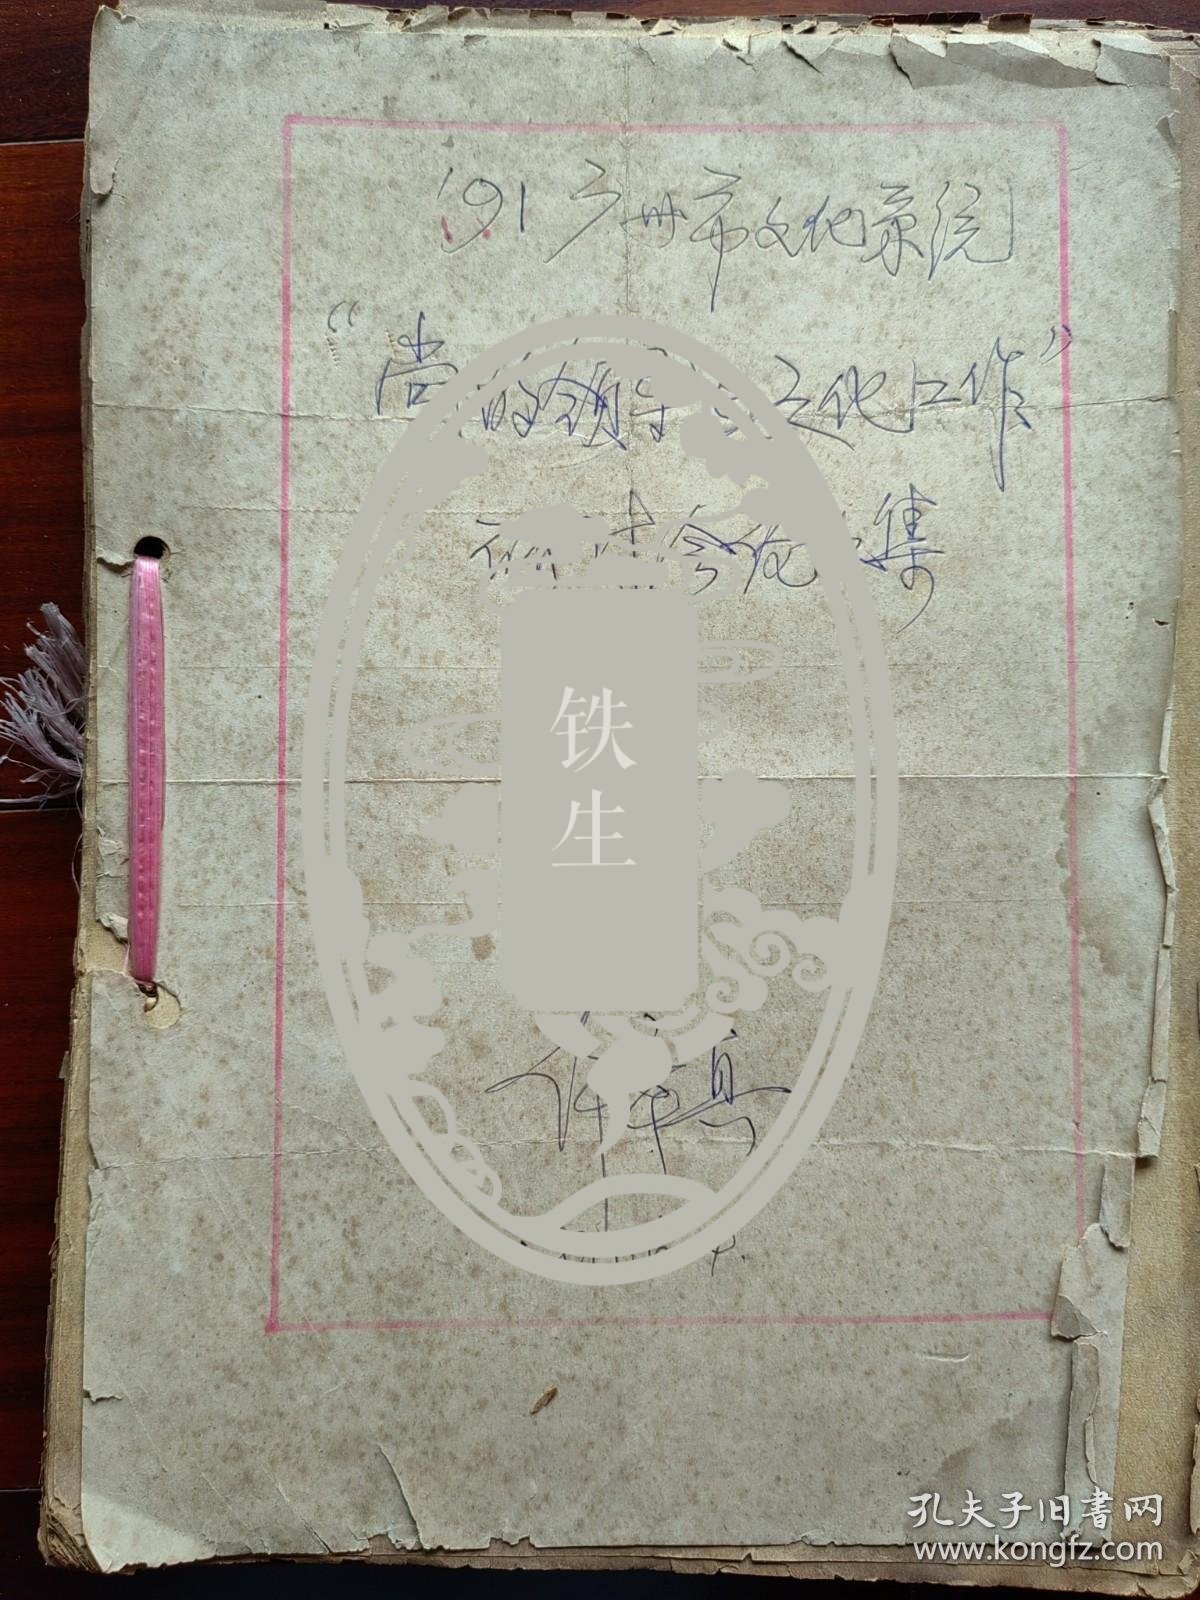 '91广州市文化系统
“党的领导与文化工作”
研讨会论文集
铁生
许
孔夫子旧書网
www.kongfz.com